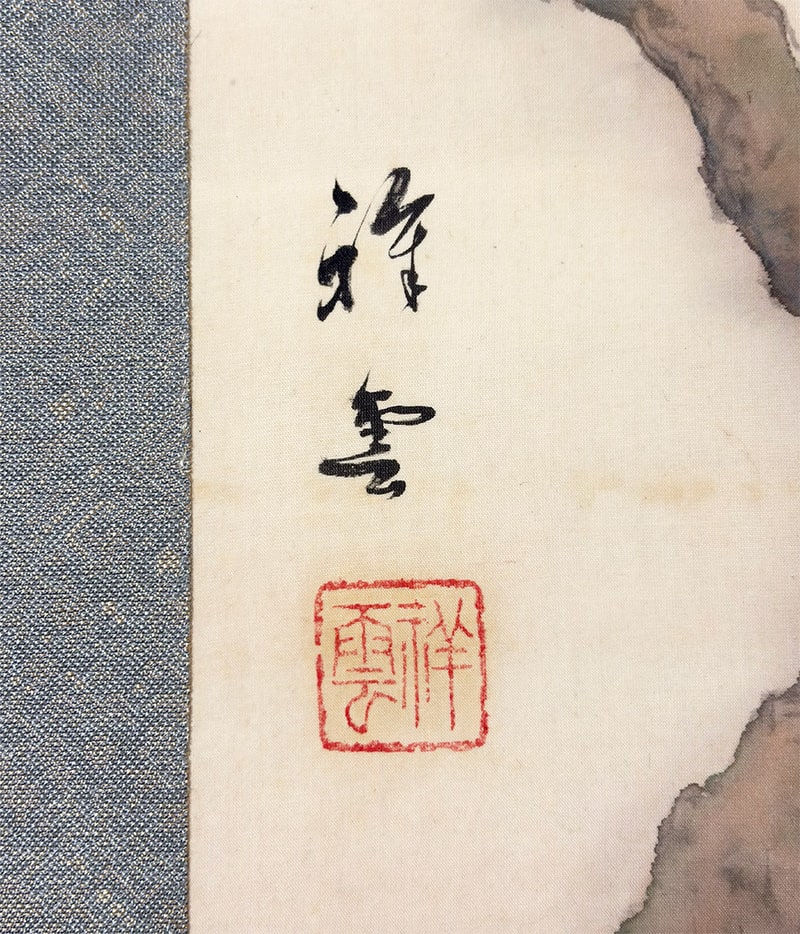 祥雲
祥雲